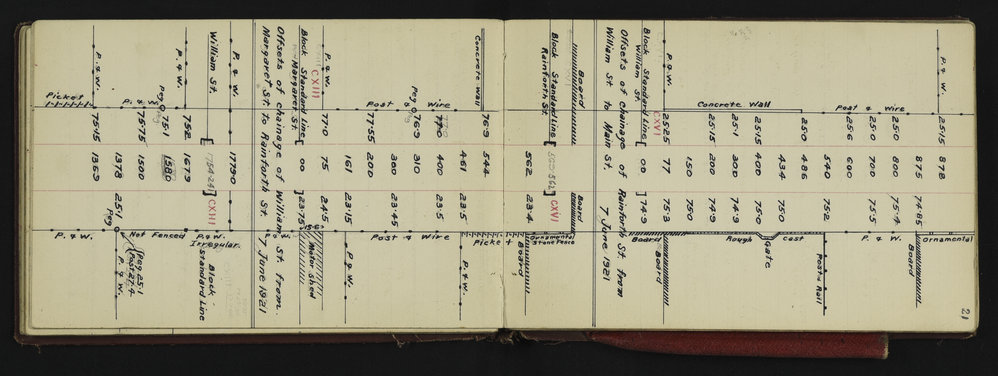 21
25·15 878 P. & W.
875 74·85 Ornamental
25·0 800 75·4 Board
25·0 700 75·5
25·6 600 P. & W.
Post & Wire
540 75·2 Post & Rail
25·0 486
434 75·0
25·15 400 75·0 Gate
25·1 300 74·9 Rough Cast
25·15 200 74·9
150 75·0
Concrete Wall
P. & W. 25·25 77 75·3 Board
CXVI
Block Standard Line [ 00 ] 74·9 Board
William St.
Offsets of chainage of Rainforth St. from
William St. to Main St. 7 June 1921
Board
Board
Block Standard Line [ 562 ] CXVI
Rainforth St.
562 23·4 Ornamental
Stone Fence
Board
Concrete Wall 76·9 544 Picket
461 23·5
77·0 400 23·5
Peg 76·9 310
Post & Wire 300 23·45 Post & Wire
77·55 200
161 23·15 P. & W.
P. & W. 77·0 75 24·5
CXIII
Block Standard Line [ 00 ] 23·75 Motor Shed
Margaret St.
P. & W.
Offsets of chainage of William St. from
Margaret St. to Rainforth St. 7 June 1921
P. & W. 1779·0
William St. [ 1754·24 ] CXIII Block
standard Line
P. & W.
Irregular.
P. & W. 75·2 1679
Peg 75·1 1580
Not Fenced
P. & W. 75·75 1500
1378 25·1 Peg
Peg 25·1
Post 27·4
P. & W.
P. & W. 75·15 1369
Picket P. & W.